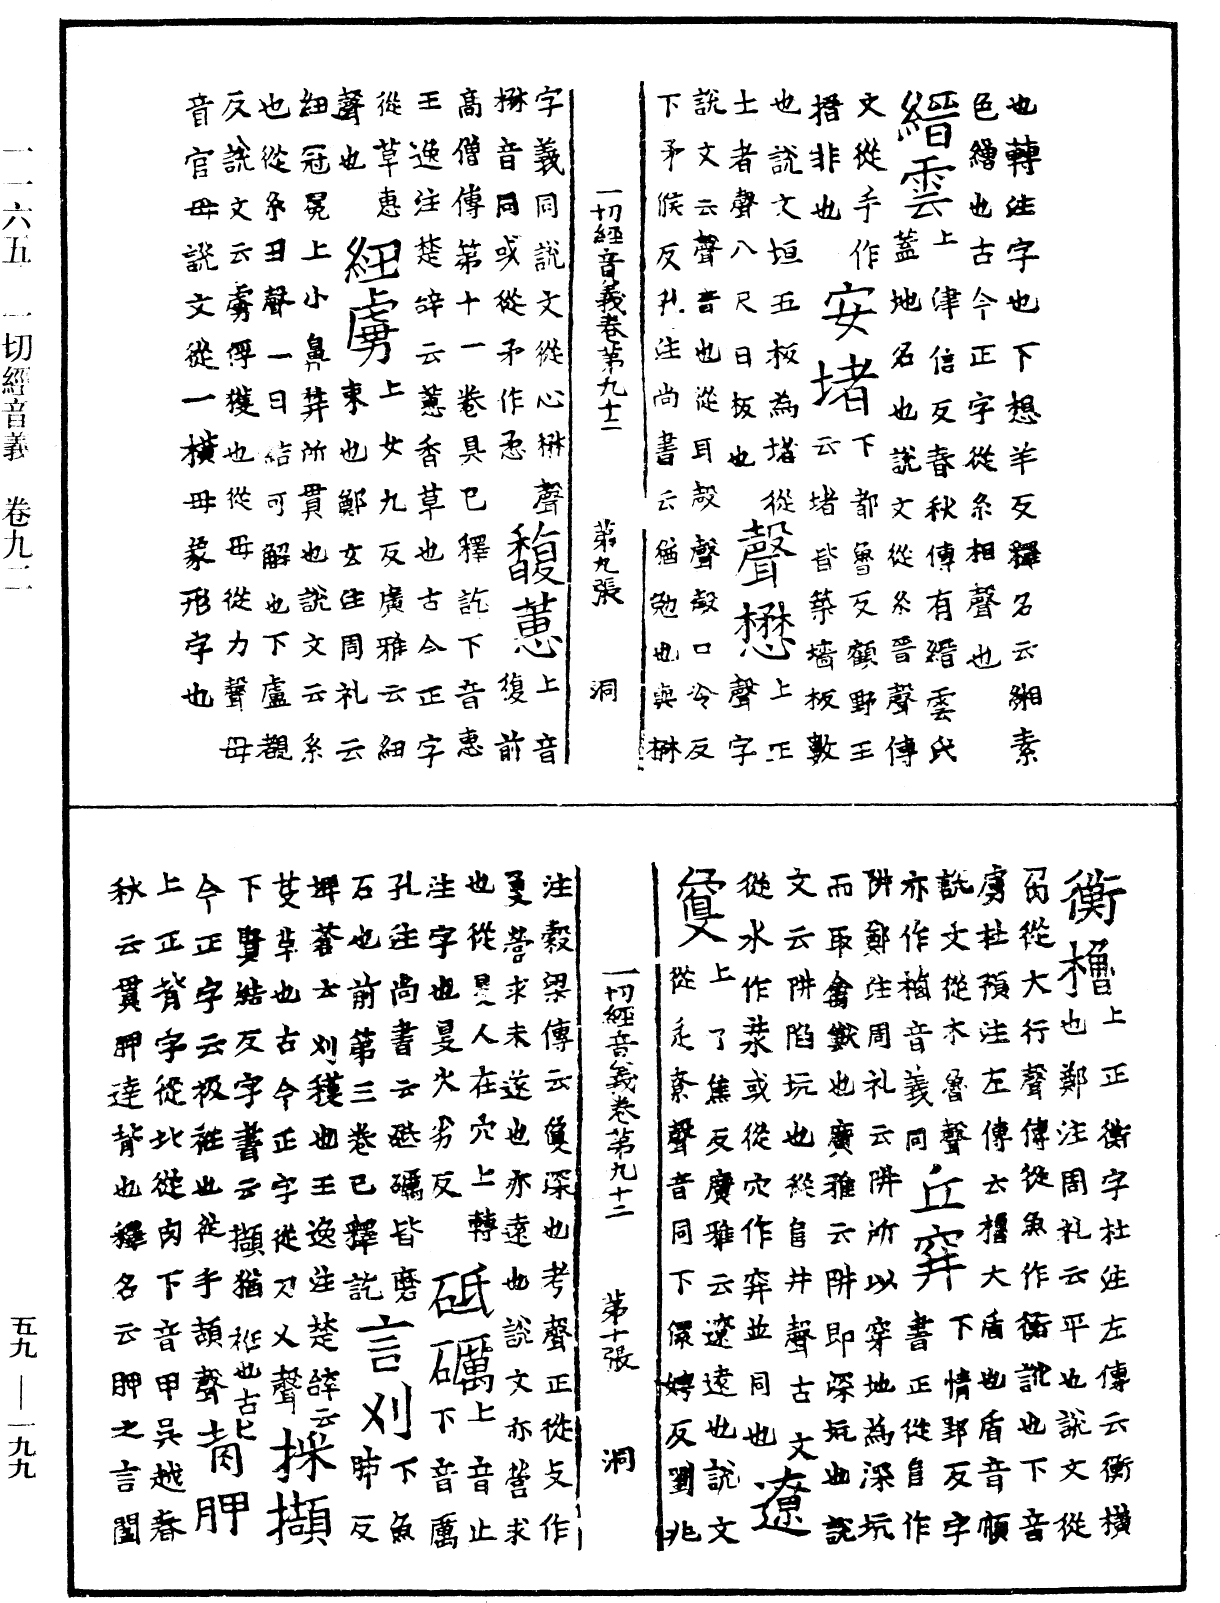 一一六五　一切經音義　卷九二
也轉注字也下想羊反釋名云緗素
色繒也古今正字從糸相聲也
縉雲上津信反春秋傳有縉雲氏
蓋地名也說文從糸晉聲傳
文從手作
搢非也安堵下都魯反顧野王
云堵皆築墻板數
也說文垣五板為堵從
土者聲八尺曰板也聲懋上正
聲字
說文云聲音也從耳殸聲殸口冷反
下矛候反孔注尚書云猶勉也與楙
一切經音義卷第九十二　第九張　洞
字義同說文從心楙聲
楙音同或從矛作悉馥蕙上音
復前
高僧傳第十一卷具已釋訖下音惠
王逸注楚辞云蕙香草也古今正字
從草惠
聲也紐虜上女九反廣雅云紐
束也鄭玄注周礼云
紐冠冕上小鼻弁所貫也說文云糸
也從糸丑聲一曰結可解也下盧覩
反說文云虜俘獲也從毋從力聲毋
音官毋說文從一橫毋象形字也
衡櫓上正衡字杜注左傳云衡橫
也鄭注周礼云平也說文從
角從大行聲傳從魚作衡訛也下音
虜杜預注左傳云櫓大盾也盾音順
說文從木魯聲
亦作樐音義同丘穽下情郢反字
書正從自作
阱鄭注周礼云阱所以穿地為深坑
而取禽獸也廣雅云阱即深坑也說
文云阱陷坑也從自井聲古文
從水作汬或從穴作穽並同也遼
敻上了焦反廣雅云遼遠也說文
從辵尞聲音同下儇娉反劉兆
一切經音義卷第九十二　第十張　洞
注穀梁傳云敻深也考聲正從攴作
敻營求未遂也亦遠也說文亦營求
也從𥄎人在穴上轉
注字也𥄎火劣反砥礪上音止
下音厲
孔注尚書云砥礪皆磨
石也前第三卷已釋訖言刈下魚
肺反
埤蒼云刈穫也王逸注楚辞云
芟草也古今正字從刀乂聲採擷
下賢結反字書云擷猶衽也古
今正字云扱衽也從手頡聲背胛
上正背字從北從肉下音甲吳越春
秋云貫胛達背也釋名云胛之言闔
五九—一九九